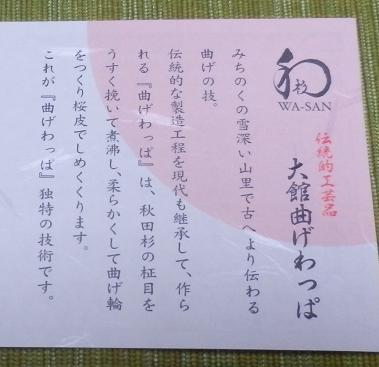 和杉
WA-SAN
伝統的工芸品
大館曲げわっぱ
みちのくの雪深い山里で古へより伝わる
曲げの技。
伝統的な製造工程を現代も継承して、作ら
れる『曲げわっぱ』は、秋田杉の柾目を
うすく挽いて煮沸し、柔らかくして曲げ輪
をつくり桜皮でしめくくります。
これが『曲げわっぱ』独特の技術です。